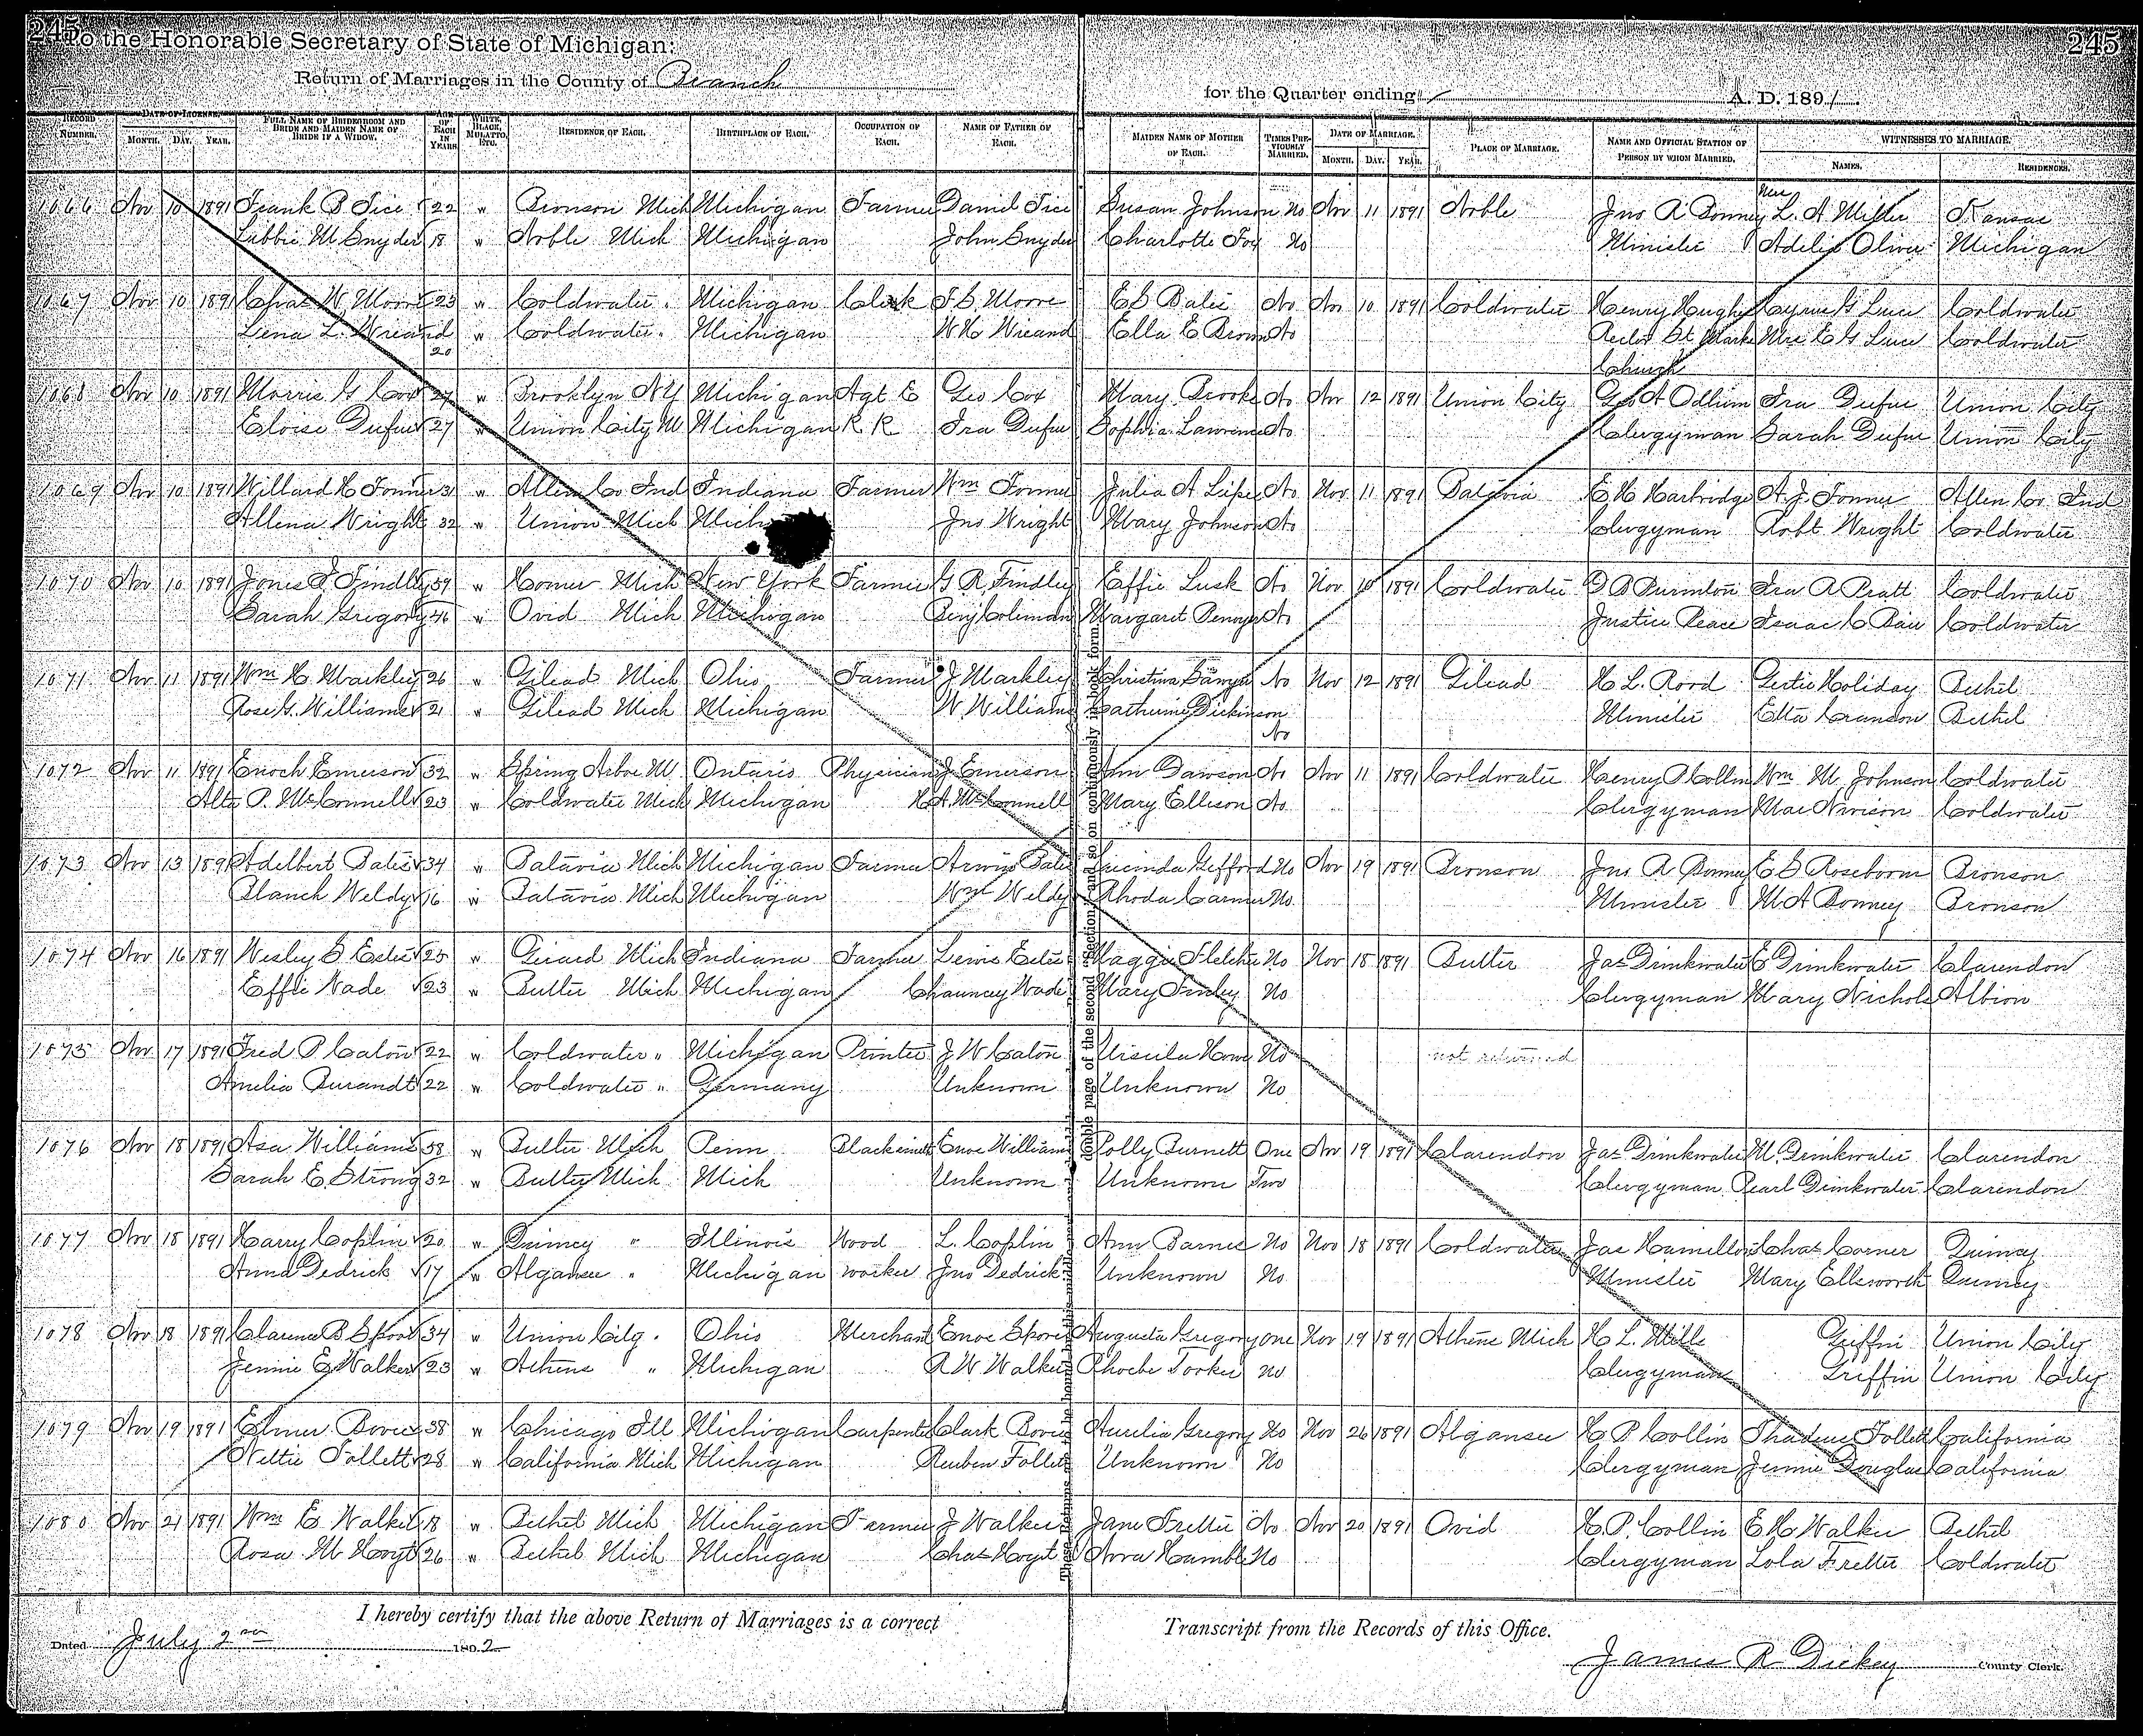 245 To the Honorable Secretary of State of Michigan: 245
Return of Marriages in the County of Branch for the Quarter ending A. D. 1891
RECORD NUMBER. DATE OF LICENSE. MONTH. DAY. YEAR. FULL NAME OF BRIDEGROOM AND BRIDE AND MAIDEN NAME OF BRIDE IF A WIDOW. AGE OF EACH IN YEARS. WHITE, BLACK, MULATTO, ETC. RESIDENCE OF EACH. BIRTHPLACE OF EACH. OCCUPATION OF EACH. NAME OF FATHER OF EACH. MAIDEN NAME OF MOTHER OF EACH. TIMES PREVIOUSLY MARRIED. DATE OF MARRIAGE. MONTH. DAY. YEAR. PLACE OF MARRIAGE. NAME AND OFFICIAL STATION OF PERSON BY WHOM MARRIED. WITNESSES TO MARRIAGE. NAMES. RESIDENCES.
1066 Nov 10 1891 Frank B Tice 22 w Bronson Mich Michigan Farmer Daniel Tice Susan Johnson No Nov 11 1891 Noble Jno R Bonney Mrs L. A. Miller Kansas
Libbie M Snyder 18 w Noble Mich Michigan John Snyder Charlotte Fox No Minister Adelia Oliver Michigan
1067 Nov 10 1891 Chas W Moore 23 w Coldwater " Michigan Clerk F. C. Moore E S Bates No Nov 10 1891 Coldwater Henry Hughes Cyrus G Luce Coldwater
Lena L. Wieand 20 w Coldwater " Michigan W H Wieand Ella E Brown No Rector St Marks Church Mrs E G Luce Coldwater
1068 Nov 10 1891 Morris G Cox 27 w Brooklyn N Y Michigan Agt E Geo Cox Mary Brooke No Nov 12 1891 Union City Geo A Odlum Ira Dufur Union City
Eloise Dufur 27 w Union City M Michigan R R Ira Dufur Sophia Lawrence No Clergyman Sarah Dufur Union City
1069 Nov 10 1891 Willard H Fonner 31 w Allen Co Ind Indiana Farmer Wm Fonner Julia A No Nov 11 1891 Batavia E H Harbridge A. J. Fonner Allen Co Ind
Allena Wright 32 w Union Mich Mich Jno Wright Mary Johnson No Clergyman Robt Wright Coldwater
1070 Nov 10 1891 Jones F. Findley 59 w Homer Mich New York Farmer G R Findley Effie Lusk No Nov 10 1891 Coldwater D B Purinton Ira A Pratt Coldwater
Sarah Gregory 46 w Ovid Mich Michigan Benj Coleman Margaret No Justice Peace Isaac C Bair Coldwater
1071 Nov 11 1891 Wm H. Markley 26 w Gilead Mich Ohio Farmer J Markley Christina No Nov 12 1891 Gilead H L. Rood Gertie Holiday Bethel
Rose G. Williams 21 w Gilead Mich Michigan W. Williams Catherine Dickinson No Minister Etta Cranson Bethel
1072 Nov 11 1891 Enoch Emerson 32 w Spring Arbor M. Ontario Physician J Emerson Ann Dawson No Nov 11 1891 Coldwater Henry P Collin Wm M Johnson Coldwater
Alta P. McConnell 23 w Coldwater Mich Michigan H A McConnell Mary Ellison No Clergyman Mae Nivison Coldwater
1073 Nov 13 1891 Adelbert Bates 34 w Batavia Mich Michigan Farmer Arwin Bates Lucinda Gifford No Nov 19 1891 Bronson Jno R Bonney E S Roseboom Bronson
Blanch Weldy 16 w Batavia Mich Michigan Wm Weldy Rhoda Carmer No Minister M A Bonney Bronson
1074 Nov 16 1891 Wesley S Estes 25 w Girard Mich Indiana Farmer Lewis Estes Maggie Fletcher No Nov 18 1891 Butler Jas Drinkwater E Drinkwater Clarendon
Effie Wade 23 w Butler Mich Michigan Chauncey Wade Mary Finley No Clergyman Mary Nichols Albion
1075 Nov 17 1891 Fred P Caton 22 w Coldwater " Michigan Printer J W Caton Urseula Howe No not returned
Amelia Burandt 22 w Coldwater " Germany Unknown Unknown No
1076 Nov 18 1891 Asa Williams 58 w Butler Mich Penn Blacksmith Enos Williams Polly Burnett One Nov 19 1891 Clarendon Jas Drinkwater M. Drinkwater Clarendon
Sarah E. Strong 32 w Butler Mich Mich Unknown Unknown Two Clergyman Pearl Drinkwater Clarendon
1077 Nov 18 1891 Harry Coplin 20 w Quincy " Illinois Wood L. Coplin Ann Barnes No Nov 18 1891 Coldwater Jas Hamilton Chas Corner Quincy
Anna Dedrick 17 w Algansee " Michigan worker Jno Dedrick Unknown No Minister Mary Ellsworth Quincy
1078 Nov 18 1891 Clarence B Spoor 34 w Union City " Ohio Merchant Enos Spoor Augusta Gregory one Nov 19 1891 Athens Mich H L. Mills Griffin Union City
Jennie E Walker 23 w Athens " Michigan R W Walker Phoebe Tooker no Clergyman Griffin Union City
1079 Nov 19 1891 Elmer Bovee 38 w Chicago Ill Michigan Carpenter Clark Bovee Aurelia Gregory No Nov 26 1891 Algansee H P Collin Thadeus Follett California
Nettie Follett 28 w California Mich Michigan Reuben Follett Unknown No Clergyman Jennie Douglas California
1080 Nov 21 1891 Wm E Walker 18 w Bethel Mich Michigan Farmer J Walker Jane Fretter No Nov 20 1891 Ovid H. P. Collin E H Walker Bethel
Rosa M Hoyt 26 w Bethel Mich Michigan Chas Hoyt Anna Hamble No Clergyman Lola Fretter Coldwater
double page of the second section, and so on continuously in book form.
I hereby certify that the above Return of Marriages is a correct Transcript from the Records of this Office.
Dated July 2nd 1892 James R Dickey County Clerk.